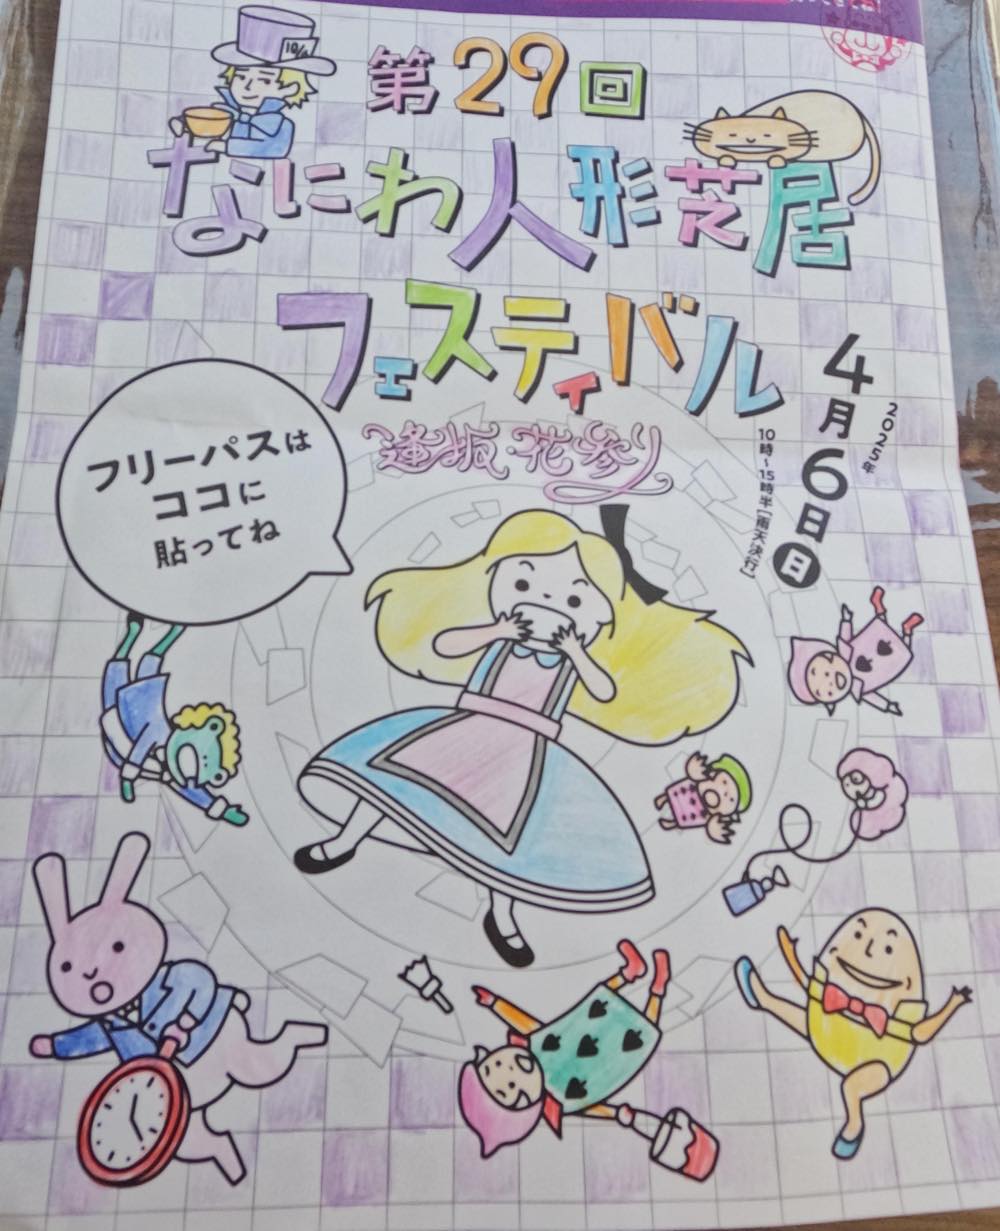 10/6
第29回
なにわ人形芝居
フェスティバル
逢坂・花参り
2025年
4月6日日
10時~15時半[雨天決行]
フリーパスは
ココに
貼ってね